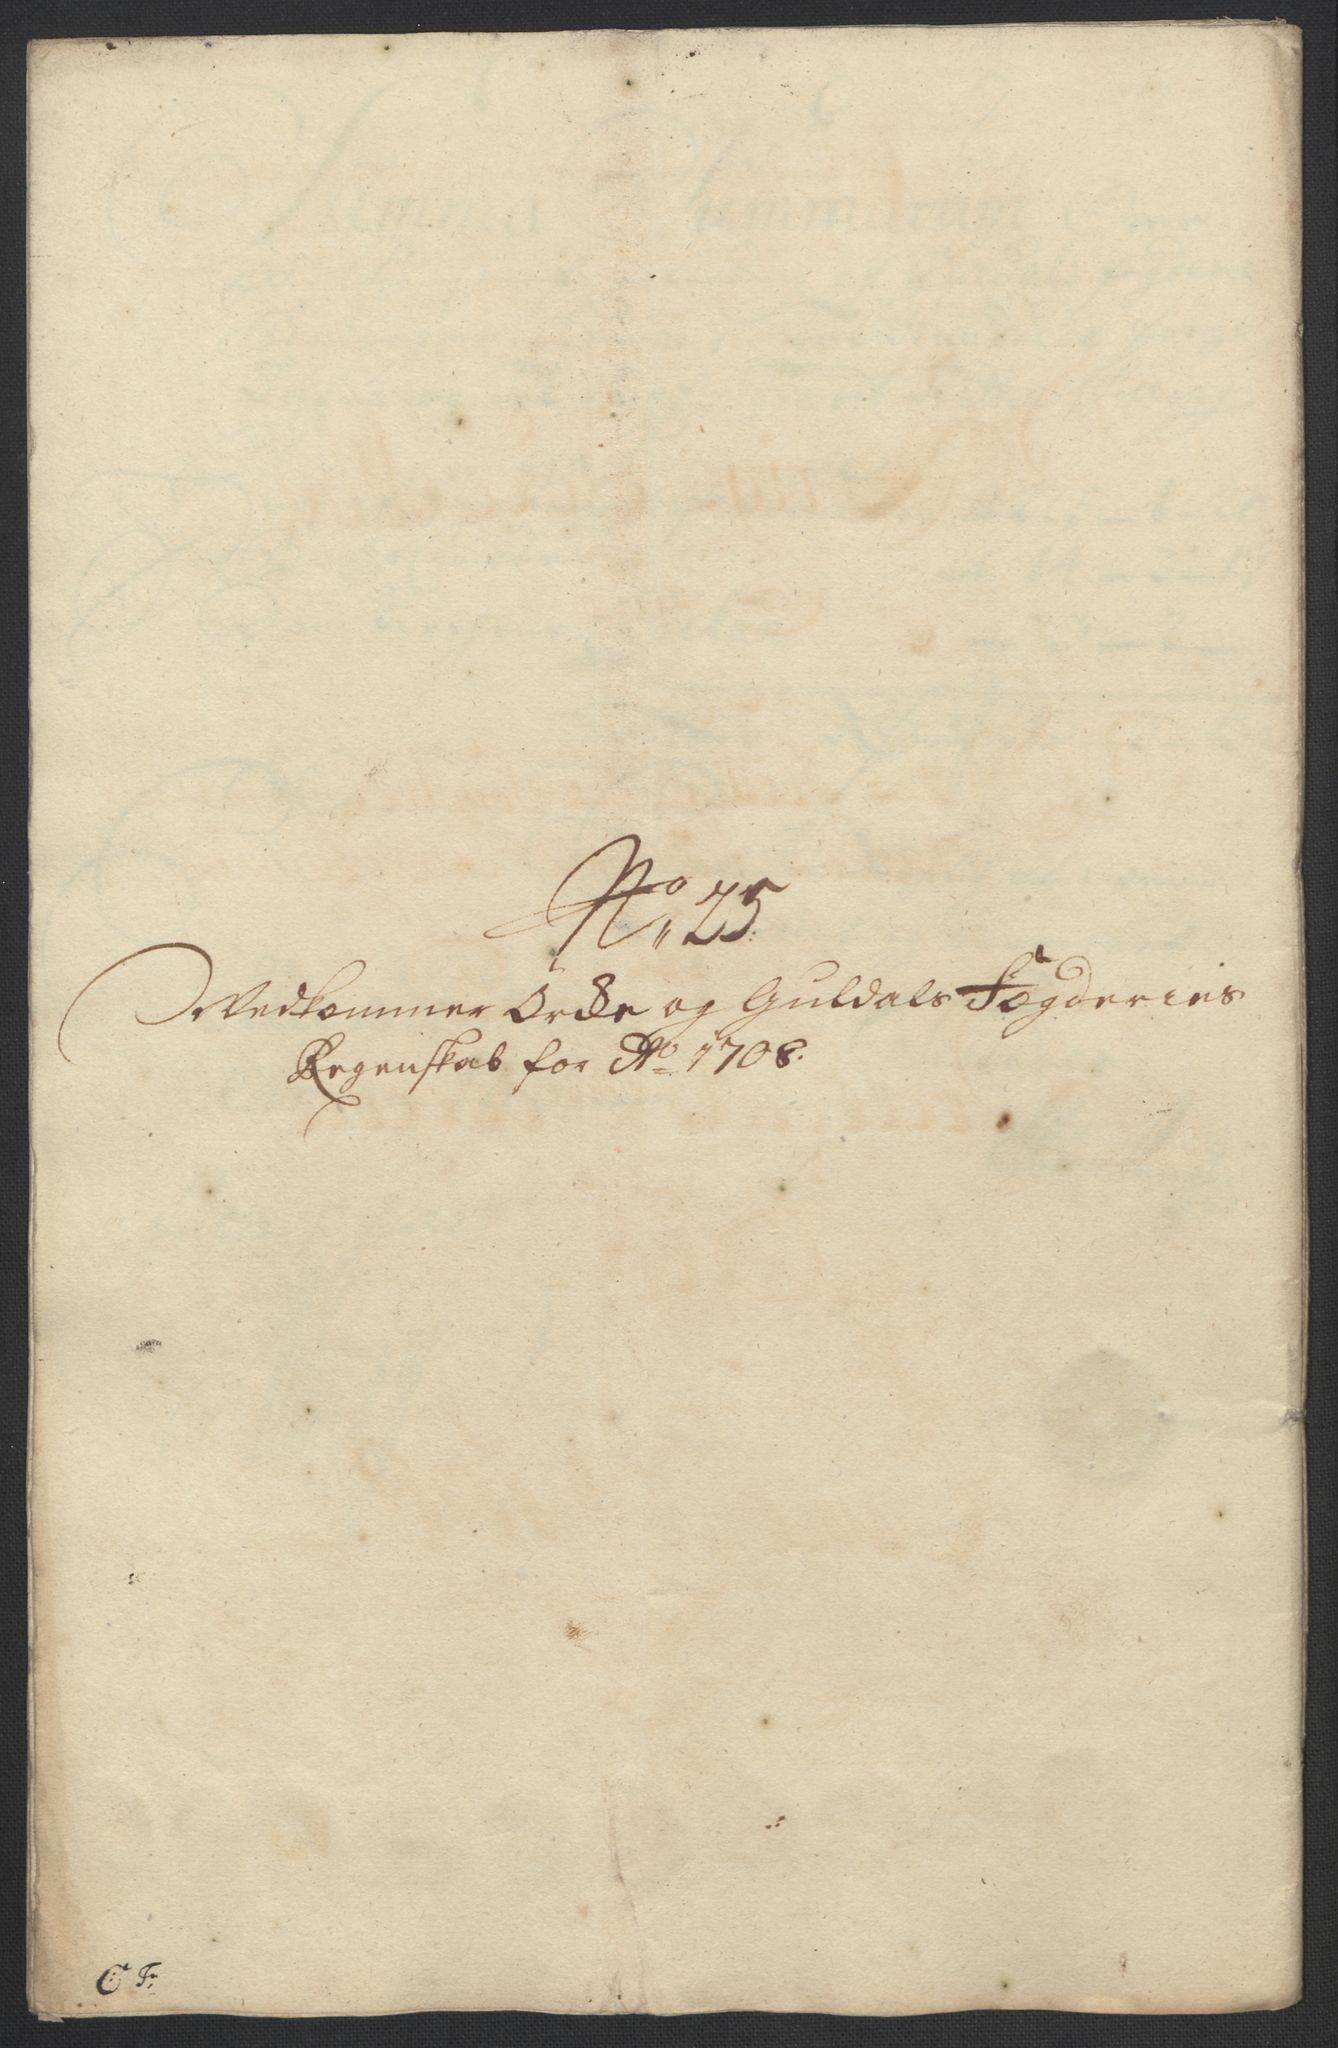 No 25
Vedkommer Ørche og Guldals Fogderies
Regenskab for Ao 1708.
C F: